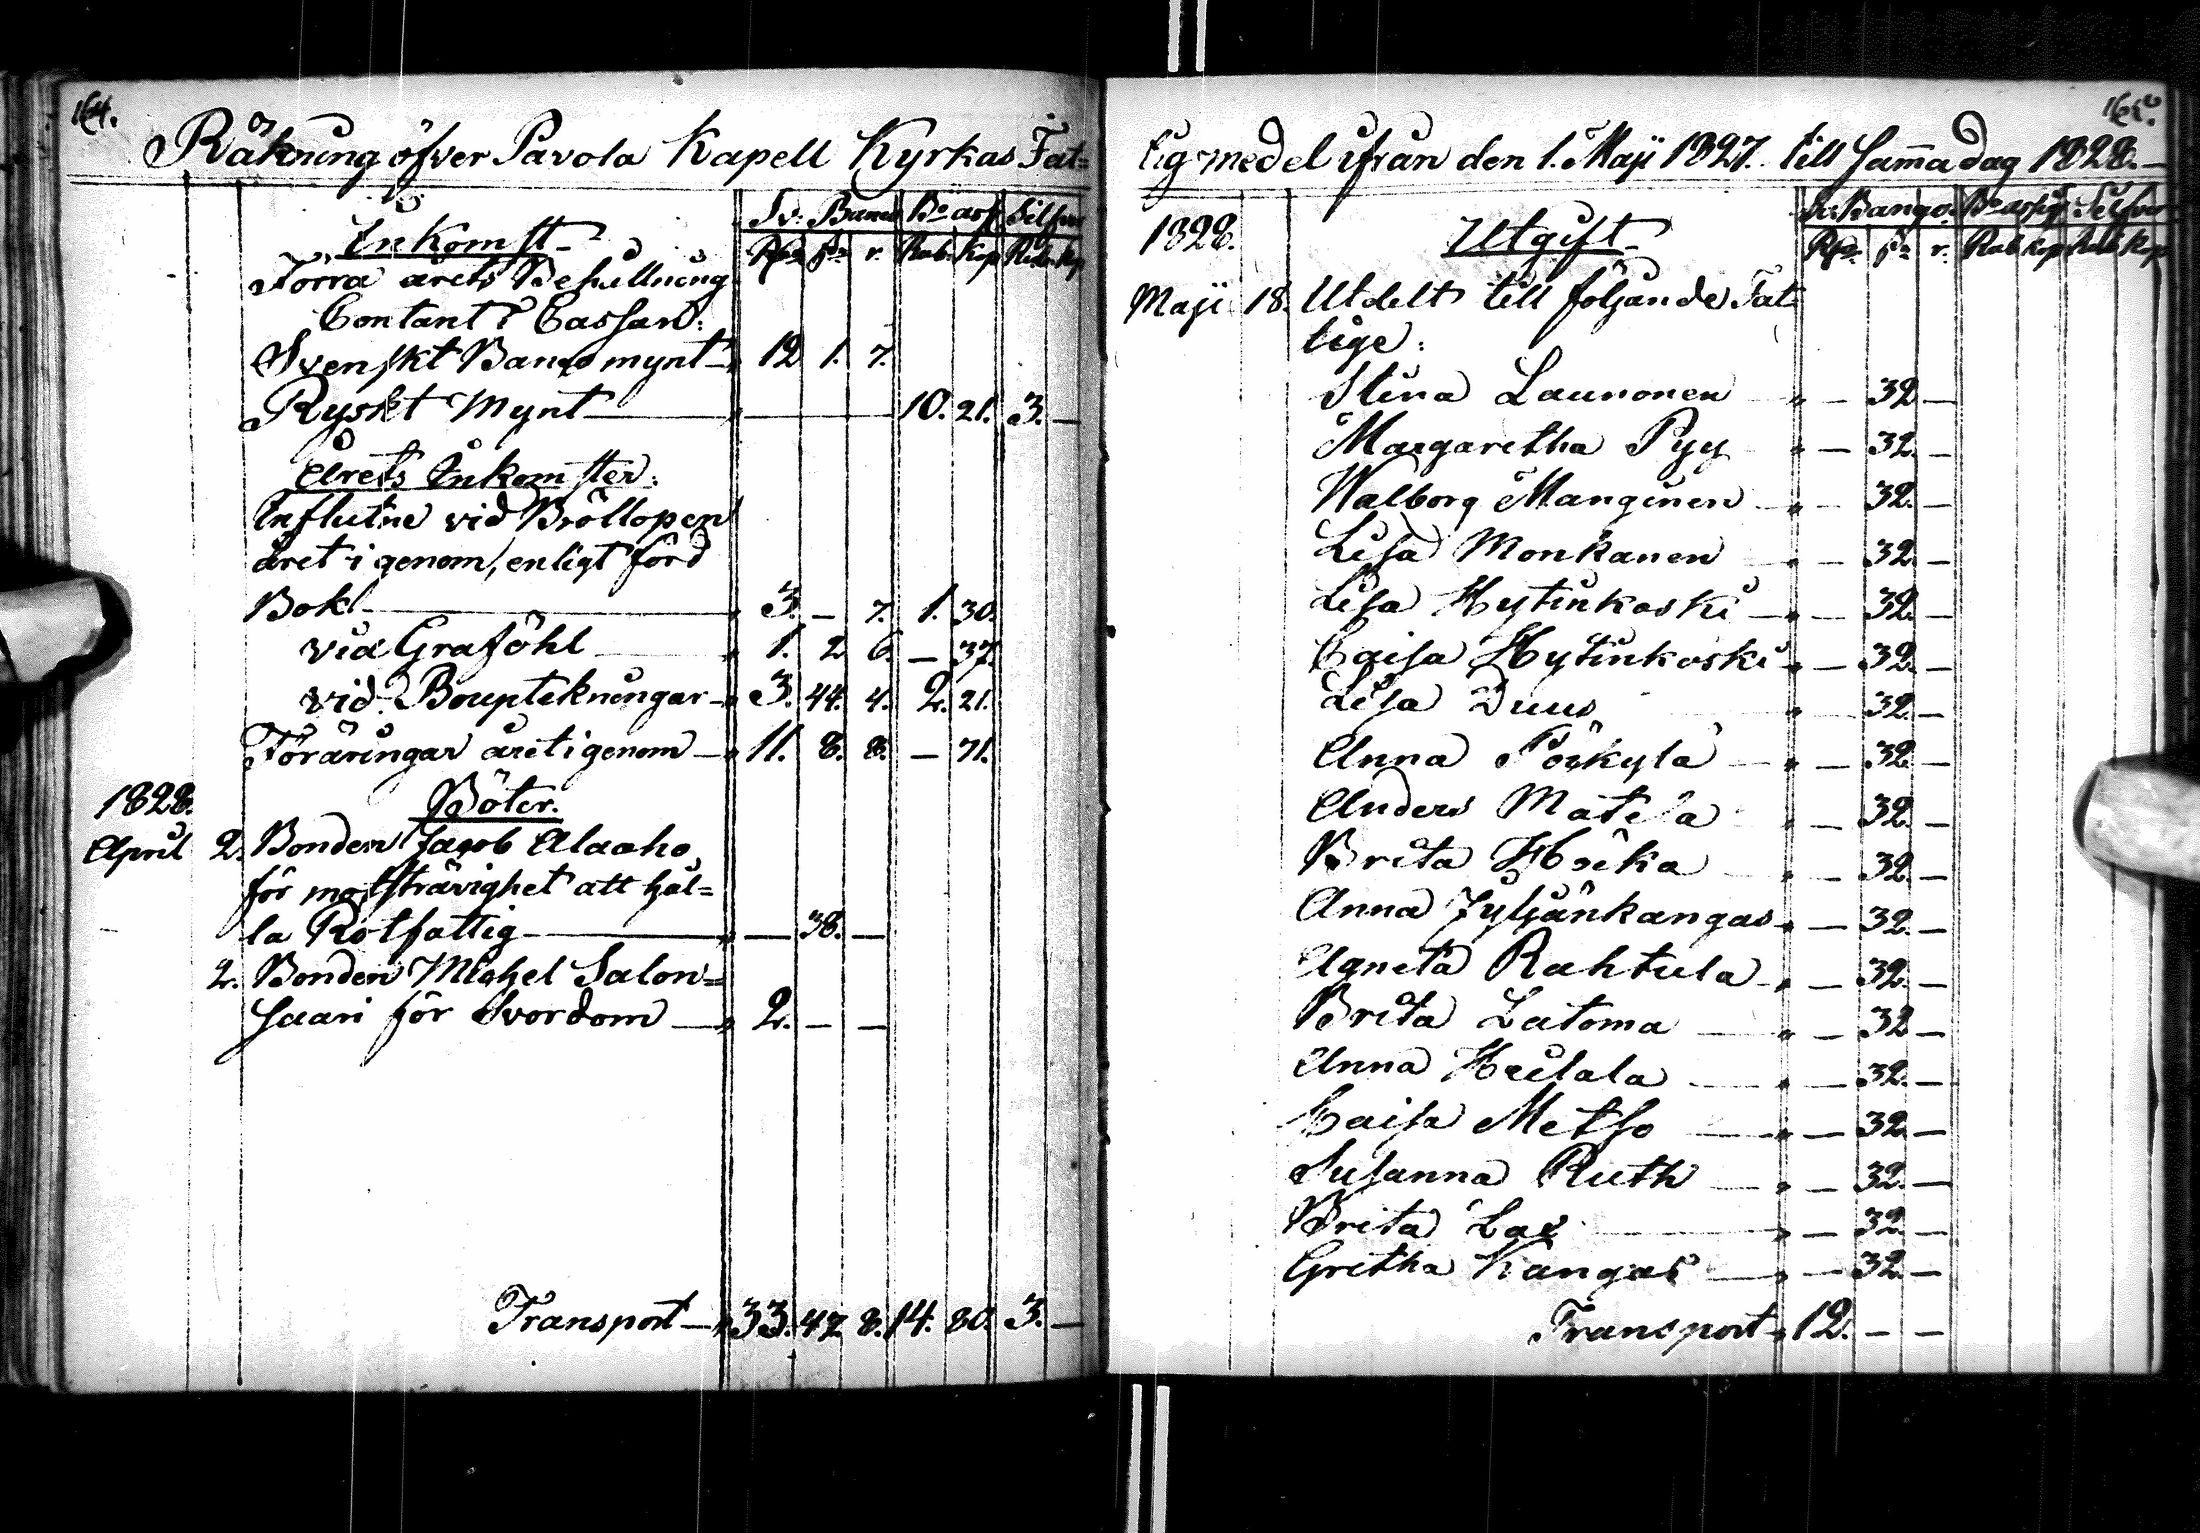 164.
Räkning öfver Pavola Kapell Kyrkas Fat=
Sv: Banco Bco ass Silfver
Inkomst
Rdr sr. r. Rub. Kop Rub. Kp
Förra årets Behållning
Contant i Cassan:
Svenskt Banco mynt — 12 1. 7.
Ryskt Mynt — — 10. 21. 3. —
Årets Inkomster:
Influtne vid Bröllopen
året igenom, enligt förd
Bok — 3. — 7. 1. 30.
vid Graföhl — 1. 2 6. — 37.
vid Boupteckningar — 3. 44. 4. 2. 21.
Föräringar året igenom — 11. 8. 8. — 71.
1828. Böter.
April 2. Bonden Jacob Alaaho
för motsträvighet att hål=
la Rotfattig — — 38. —
2. Bonden Michel Salon=
saari för Svordom — 2. — —
Transport — 33. 42 8. 14. 80. 3. —
165.
tig medel ifrån den 1. Maji 1827. till samma dag 1828. —
Sv. Banco. Bco assig Silfver
1828. Utgift
Rdr. sr. r. Rub kop Rub kop
Maji 18. Utdelt till följande Fat
tige:
Stina Launonen „ — 32 —
Margaretha Pyy „ — 32. —
Walborg Manginen „ — 32. —
Lisa Monkanen „ — 32. —
Lisa Hytinkoski „ — 32. —
Caisa Hytinkoski „ — 32. —
Lisa Duus „ — 32. —
Anna Pörkylä „ — 32. —
Anders Matela „ — 32. —
Brita — 32. —
Anna Jyljänkangas „ — 32. —
Agneta Rahtula „ — 32. —
Brita Latoma „ — 32 —
Anna Heilala „ — 32. —
Caisa Metso „ — 32. —
Susanna Ruth „ — 32. —
Brita Lax „ — 32. —
Gretha Kangas „ — 32. —
Transport „ 12. — —